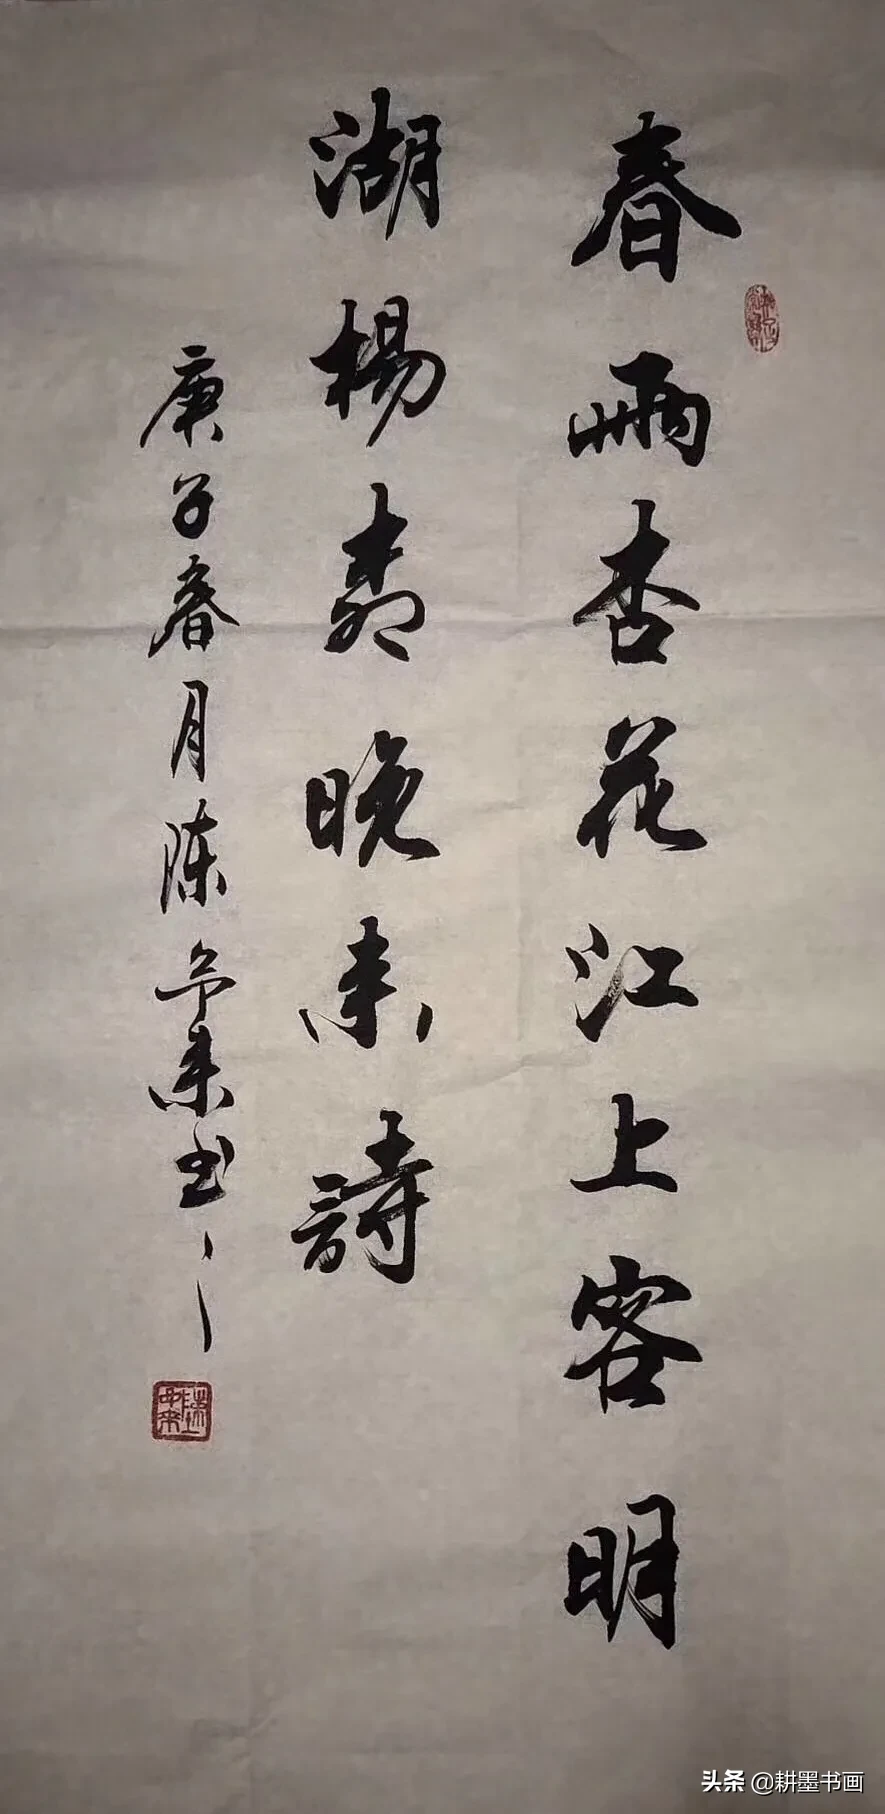 春雨杏花江上客明
湖楊柳晚来詩
庚子春月陈来书
头条 @耕墨书画